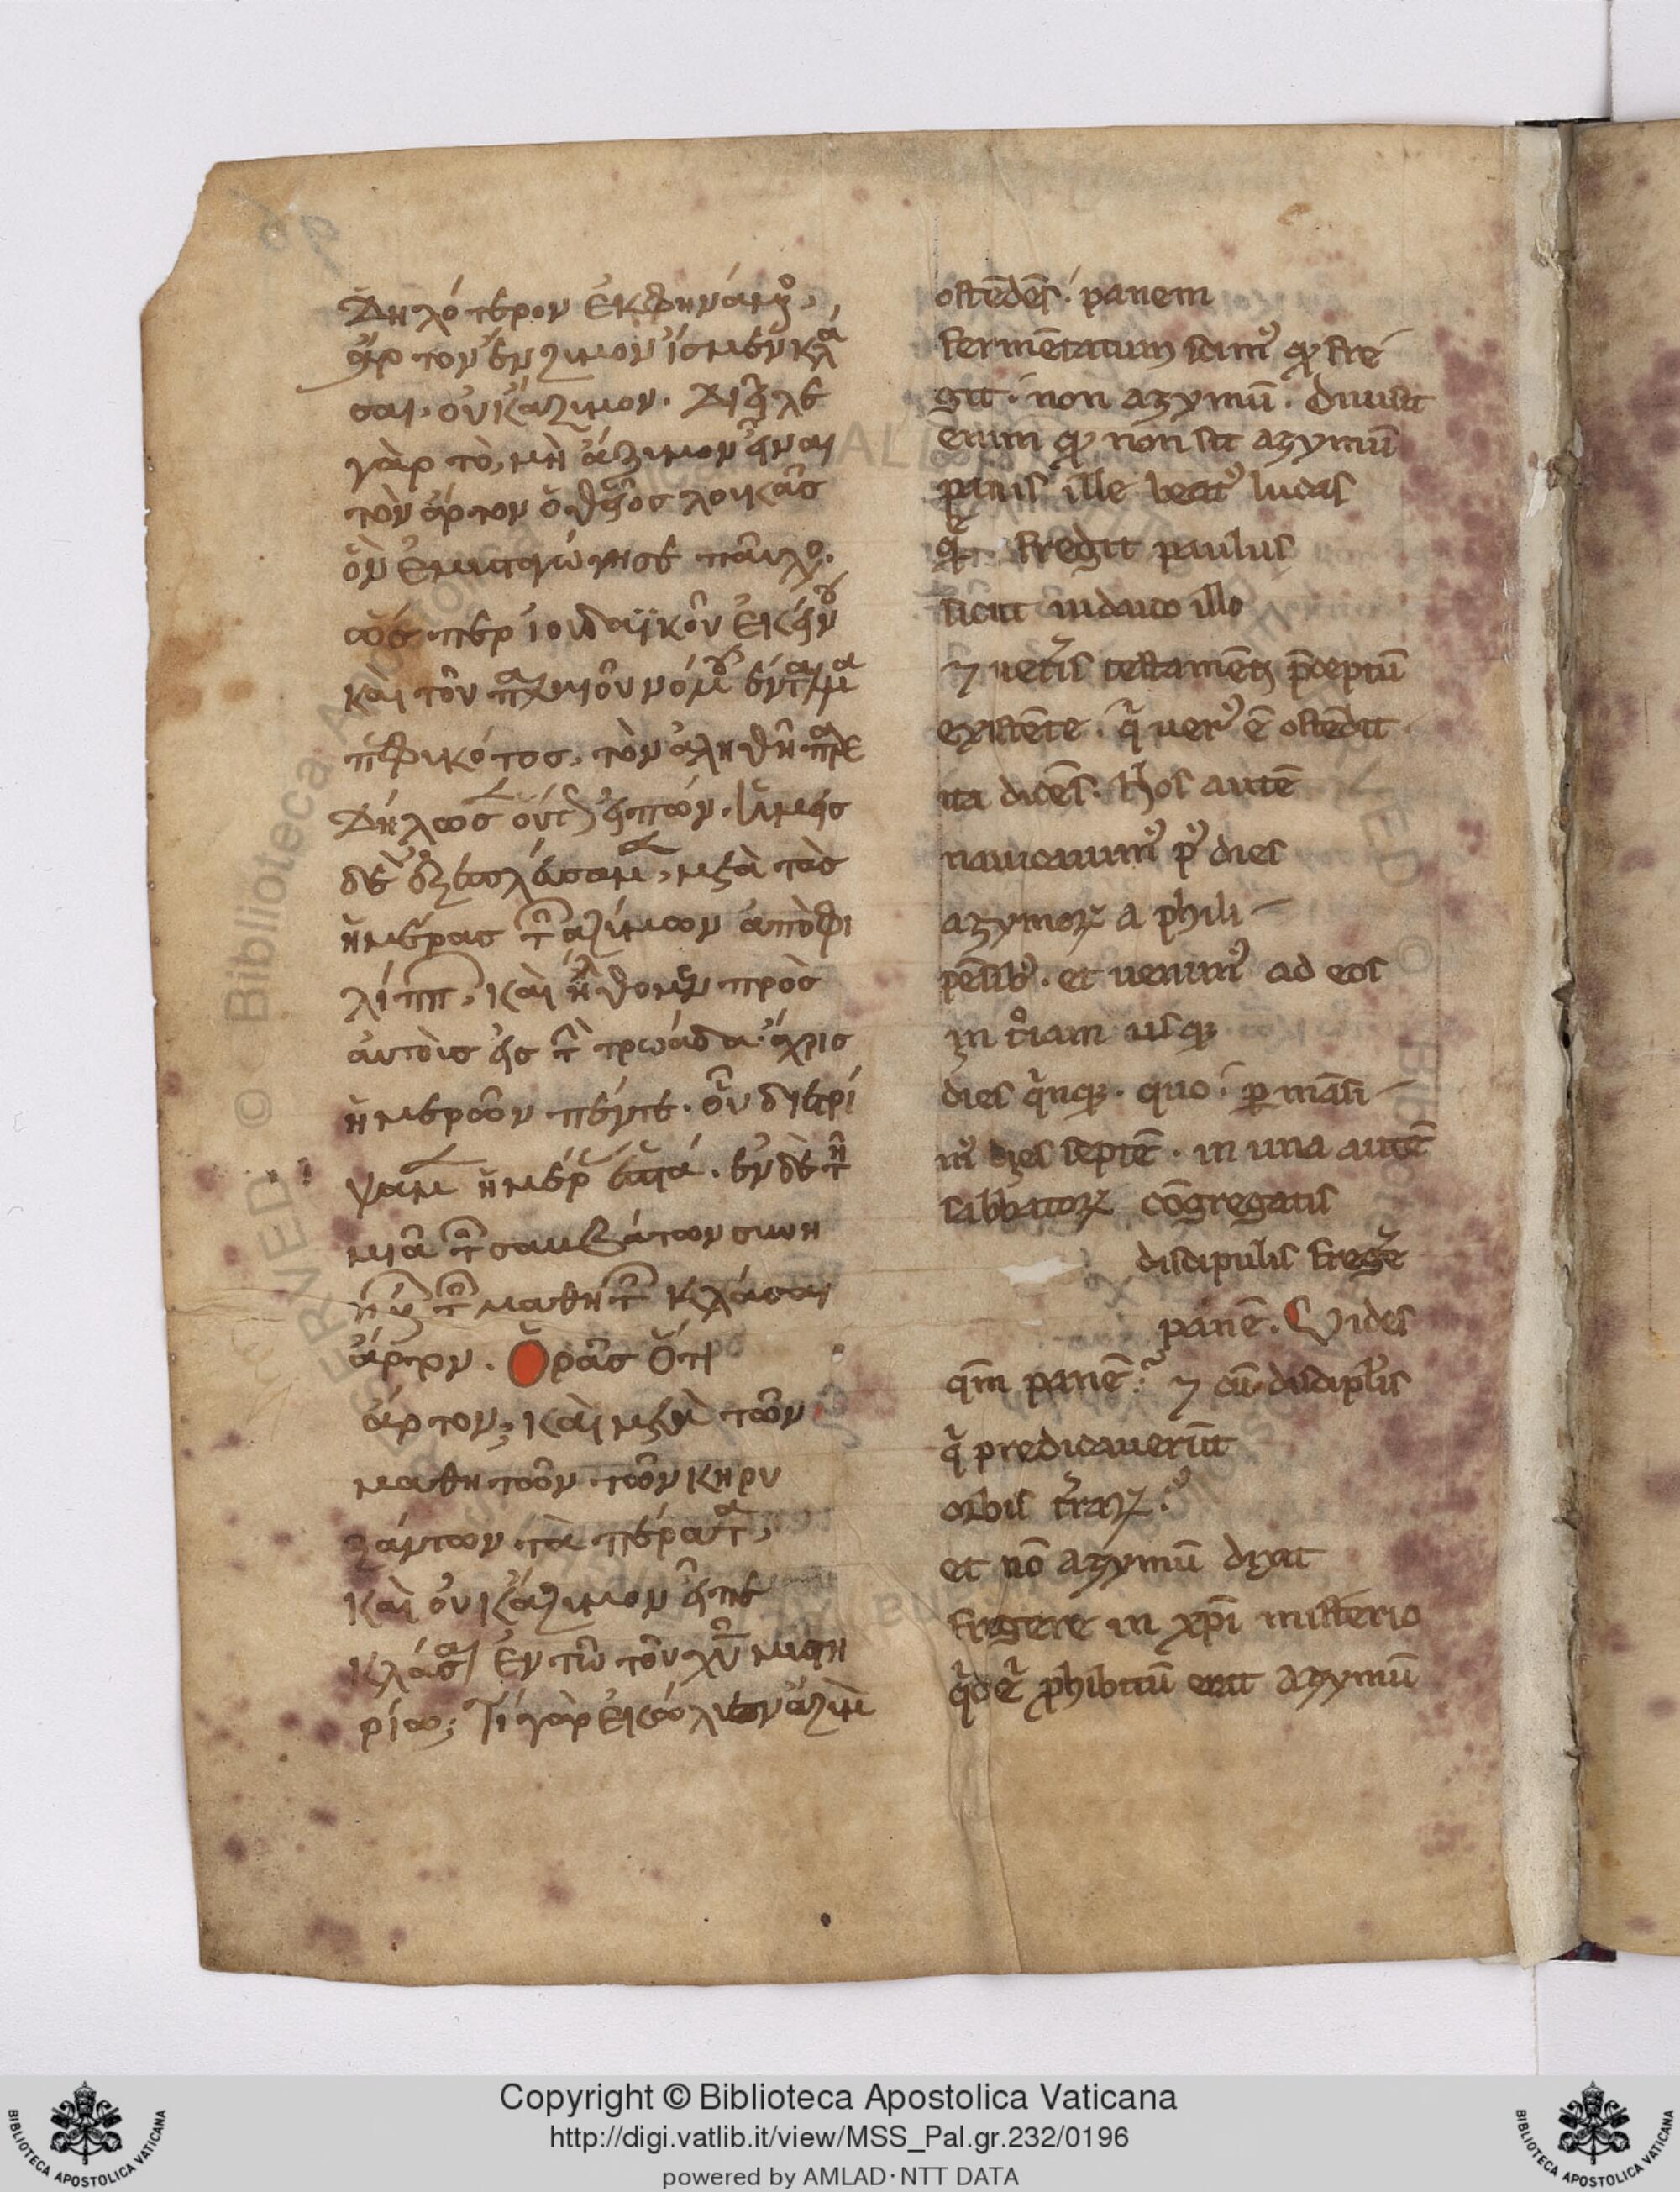 δηλότερον ἐκφηνάμ
ἄρτον ἔνζιμον ἴσμεν κλά
σαι, οὐκ ἄζιμον. διῆλε
γὰρ τὸ, μὴ ἄζιμον εἶναι
τὸν ἄρτον ὁ θεῖος λουκᾶς
ὃν ἐμυσταγώγησε παῦλο.
ὥσπερ ἰουδαϊκοῦ ἐκείν
καὶ τοῦ παλαιοῦ νόμου
πεφικότος, τὸν ἀληθῆ
δήλως οὕτ εἰπών. ἡμεῖς
δὲ ἐξεπλεύσαμ, μετὰ τὰς
ἡμέρας τ ἀζίμων ἀπὸ φι
λίππ, καὶ ἤλθομεν πρὸς
αὐτοὺς εἰς τ τρωάδα ἄχρις
ἡμερῶν πέντε. οὗ διετρί
ψαμ ἡμέρ ἑπτά. ἐν δὲ τῆ
μιᾶ τ σαμβάτων συνη
τ μαθητ κλάσαι
ἄρτον. Ὁρᾶς ὅτι
ἄρτον; καὶ μετὰ τῶν
μαθητῶν τῶν κηρυ
ξάντων τὰ πέρατα,
καὶ οὐκ ἄζιμον εἶπε
κλάσαι ἐν τῶ τοῦ χῦ μιστη
ρίω; Τί γὰρ ἐκώλυεν ἄζιμ
ostēdēs. panem
fermētatum scimꝰ qđ fre
git. non azymū. Diuulit
enim qđ non sit azymū
panis ille beatꝰ lucas
quē fregit paulus
sicut iudaico illo
⁊ ueteris testamēti p̄ceptū
existēte. q̓ uerꝰ ē ostēdit
ita dicēs. Nos autē
nauicauimꝰ pꝰ dies
azymoꝝ a phili
pēsibꝰ. et uenimꝰ ad eos
in troiam usqꝫ
dies quinqꝫ. quo ꝑmāsi
mꝰ dies septē. in una autē
sabbatoꝝ cōgregatis
discipulis fregere
panē. Vides
qm̄ panē. ⁊ cū discipl̓is
q̓ predicauerūt
orbis terraꝝ.
et nō azymū dixit
fregere in xp̄i misterio
quid enim ꝓhibitū erat azymū
Copyright © Biblioteca Apostolica Vaticana
http://digi.vatlib.it/view/MSS_Pal.gr.232/0196
powered by AMLAD·NTT DATA
BIBLIOTECA APOSTOLICA VATICANA
BIBLIOTECA APOSTOLICA VATICANA